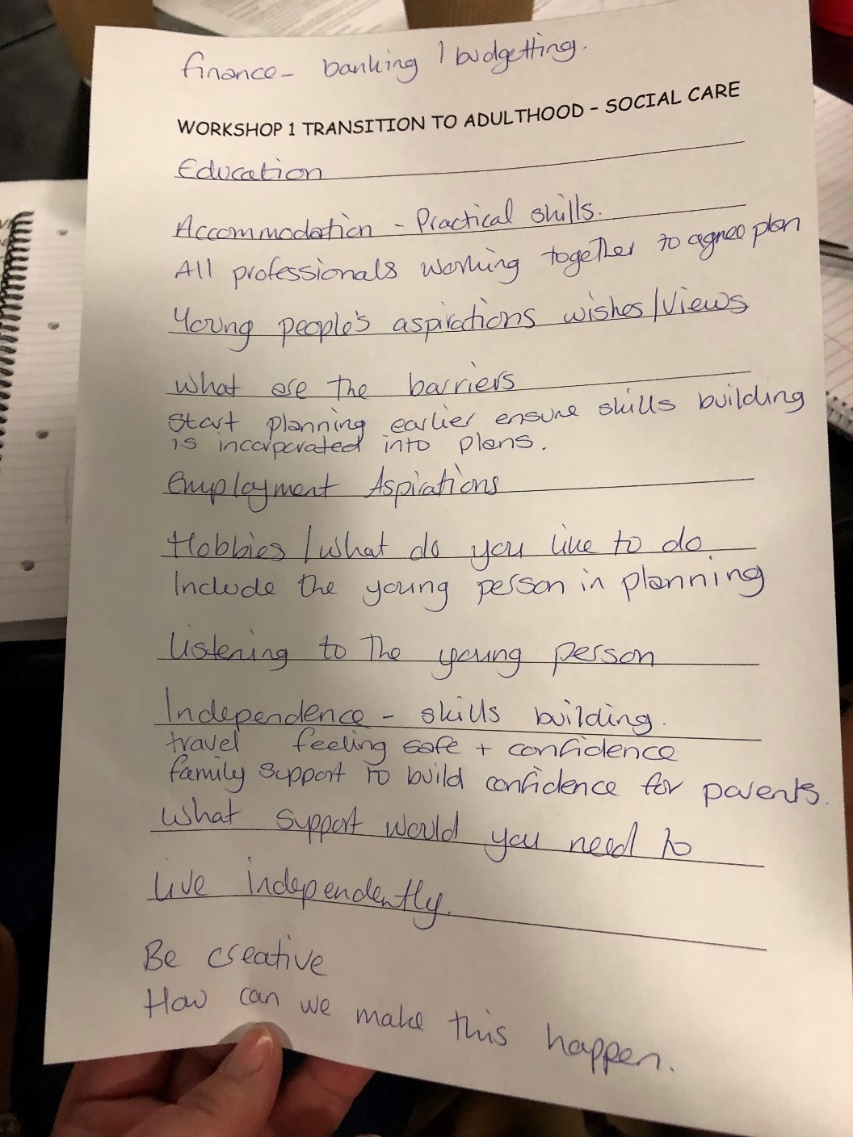 finance - banking / budgetting.
WORKSHOP 1 TRANSITION TO ADULTHOOD – SOCIAL CARE
Education
Accommodation - Practical skills.
All professionals working together to agree plan
Young people's aspirations wishes/views
what are the barriers
Start planning earlier ensure skills building
is incorporated into plans.
Employment Aspirations
Hobbies / what do you like to do
Include the young person in planning
Listening to the young person
Independence - skills building.
travel feeling safe + confidence
family support to build confidence for parents.
What support would you need to
live independently.
Be creative
How can we make this happen.